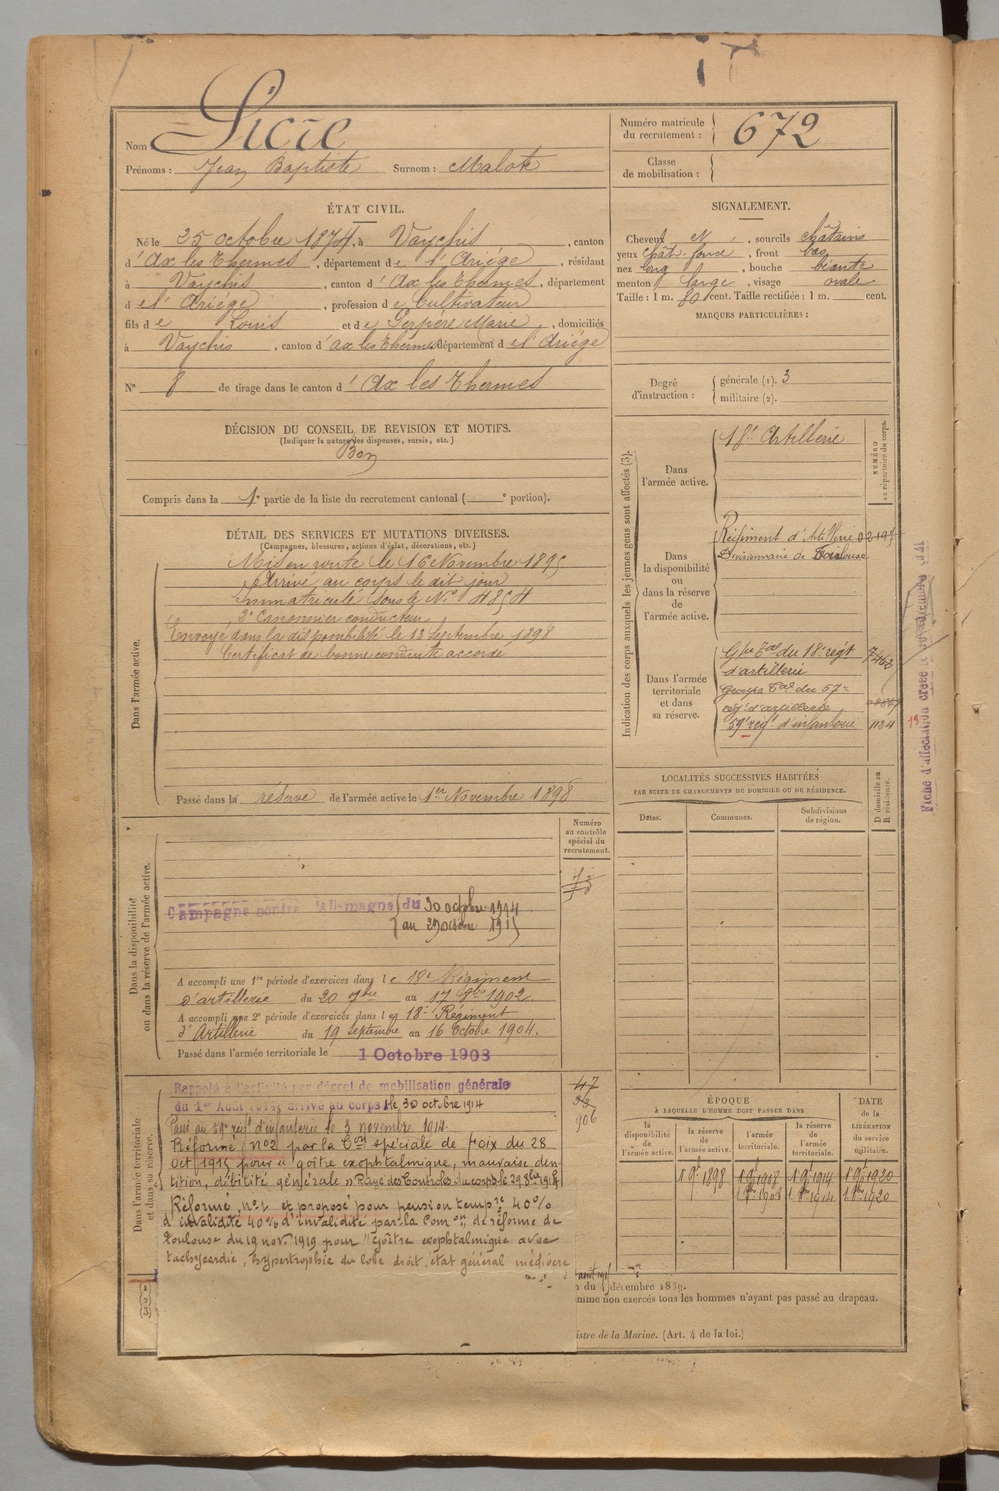 Nom Sicre
Prénoms : Jean Baptiste Surnom : Malote
Numéro matricule
du recrutement : 672
Classe
de mobilisation :
ÉTAT CIVIL.
Né le 25 octobre 1874, à Vaychis, canton
d'Ax les Thermes, département de l'Ariége, résidant
à Vaychis, canton d'Ax les Thermes, département
de l'Ariége, profession de Cultivateur
fils de Louis et de Serpère Marie, domiciliés
à Vaychis, canton d'ax les thermes département de l'Ariége
N° 8 de tirage dans le canton d'Ax les Thermes
SIGNALEMENT.
Cheveux N, sourcils châtains
yeux chât. foncé, front bas
nez long, bouche béante
menton large, visage ovale
Taille : 1 m. 80 cent. Taille rectifiée : 1 m. cent.
MARQUES PARTICULIÈRES :
Degré
d'instruction :
générale (1). 3
militaire (2).
DÉCISION DU CONSEIL DE REVISION ET MOTIFS.
(Indiquer la nature des dispenses, sursis, etc.)
Bon
Compris dans la 1e partie de la liste du recrutement cantonal ( e portion).
DÉTAIL DES SERVICES ET MUTATIONS DIVERSES.
(Campagnes, blessures, actions d'éclat, décorations, etc.)
Dans l'armée active.
Mis en route le 16 Novembre 1895
Arrivé au corps le dit jour
Immatriculé sous le N° 4854
2e Canonnier conducteur
Envoyé dans la disponibilité le 13 Septembre 1898
Certificat de bonne conduite accordé
Passé dans la réserve de l'armée active le 1er Novembre 1898
Indication des corps auxquels les jeunes gens sont affectés (3).
NUMÉRO
au répertoire du corps.
Dans
l'armée active.
18e Artillerie
Dans
la disponibilité
ou
dans la réserve
de
l'armée active.
Régiment d'Artillerie
Divisionnaire de Toulouse
Dans l'armée
territoriale
et dans
sa réserve.
Gpe Tal du 18e régt
d'artillerie
Groupe Tal du 57e
régt d'artillerie
59e régt d'infanterie 1134
LOCALITÉS SUCCESSIVES HABITÉES
PAR SUITE DE CHANGEMENTS DE DOMICILE OU DE RÉSIDENCE.
Dates. Communes. Subdivisions
de région. D domicile ou
R résidence.
Dans la disponibilité
ou dans la réserve de l'armée active.
Numéro
au contrôle
spécial du
recrutement.
Campagne contre l'Allemagne du 30 octobre 1914
au 29 octobre 1915
A accompli une 1re période d'exercices dans le 18e Régiment
d'artillerie du 20 7bre au 17 8bre 1902.
A accompli une 2e période d'exercices dans le 18e Régiment
d'Artillerie du 19 septembre au 16 Octobre 1904.
Passé dans l'armée territoriale le 1 Octobre 1908
Dans l'armée territoriale
et dans sa réserve.
Rappelé à l'activité par décret de mobilisation générale
du 1er Août 1914, arrivé au corps le 30 octobre 1914
Passé au 59e régt d'infanterie le 3 novembre 1914.
Réformé n°2 par la Con spéciale de Foix du 28
Oct 1915 pour "goître exophtalmique, mauvaise den-
tition, débilité générale" Rayé des Contrôles du corps le 29 8bre 1915
Réformé n°1 et proposé pour pension tempre 40%
d'invalidité 40% d'invalidité par la Comon de réforme de
Toulouse du 19 nov. 1919 pour "goître exophtalmique avec
tachycardie, hypertrophie du lobe droit, état général médiocre
47
906
ÉPOQUE
À LAQUELLE L'HOMME DOIT PASSER DANS
DATE
de la
LIBÉRATION
du service
militaire.
la
disponibilité
de
l'armée active.
la réserve
de
l'armée active.
l'armée
territoriale.
la réserve
de
l'armée
territoriale.
1 9e 1898
(1)
(2)
(3)
du décembre 1889.
mme non exercés tous les hommes n'ayant pas passé au drapeau.
istre de la Marine. (Art. 4 de la loi.)